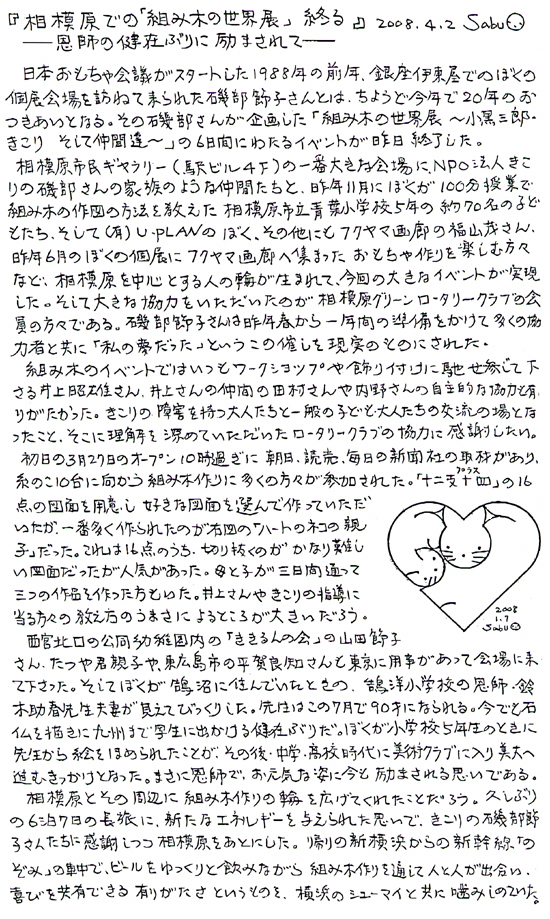 『相模原での「組み木の世界展」終る』2008.4.2 Sabu
──恩師の健在ぶりに励まされて──
日本おもちゃ会議がスタートした1988年の前年、銀座伊東屋でのぼくの
個展会場を訪ねて来られた磯部節子さんとは、ちょうど今年で20年のお
つきあいとなる。その磯部さんが企画した「組み木の世界展 〜小黒三郎・
きこり そして仲間達〜」の6日間にわたるイベントが昨日終了した。
相模原市民ギャラリー(駅ビル4F)の一番大きな会場に、NPO法人きこ
りの磯部さんの家族のような仲間たちと、昨年11月にぼくが100分授業で
組み木の作図の方法を教えた相模原市立青葉小学校5年の約70名の子ど
もたち、そして(有)U-PLANのぼく、その他にもフクヤマ画廊の福山茂さん、
昨年6月のぼくの個展にフクヤマ画廊へ集まったおもちゃ作りを楽しむ方々
など、相模原を中心とする人の輪が生まれて、今回の大きなイベントが実現
した。そして大きな協力をいただいたのが相模原グリーンロータリークラブの会
員の方々である。磯部節子さんは昨年春から一年間の準備をかけて多くの協
力者と共に「私の夢だった」というこの催しを現実のものにされた。
組み木のイベントではいつもワークショップや飾り付けに馳せ参じて下
さる井上昭雄さん、井上さんの仲間の田村さんや内野さんの自主的な協力も有
りがたかった。きこりの障害を持つ大人たちと一般の子ども大人たちの交流の場とな
ったこと、そこに理解を深めていただいたロータリークラブの協力に感謝したい。
初日の3月27日のオープン10時過ぎに朝日、読売、毎日の新聞社の取材があり、
糸のこ10台に向かう組み木作りに多くの方々が参加された。「十二支十四」の16
プラス
点の図面を用意し好きな図面を選んで作っていただ
いたが、一番多く作られたのが右図の「ハートのネコの親
子」だった。これは16点のうち、切り抜くのがかなり難し
い図面だったが人気があった。母と子が三日間通って
三つの作品を作った方もいた。井上さんやきこりの指導に
当る方々の教え方のうまさによるところが大きいだろう。
2008
1.7
Sabu
西宮北口の公同幼稚園内の「ききるんの会」の山田節子
さん、たつや君親子や、東広島市の平賀良知さんも東京に用事があって会場に来
て下さった。そしてぼくが鵠沼に住んでいたときの、鵠洋小学校の恩師・鈴
木助春先生夫妻が見えてびっくりした。先生はこの7月で90才になられる。今でも石
仏を描きに九州まで写生に出かける健在ぶりだ。ぼくが小学校5年生のときに
先生から絵をほめられたことが、その後・中学・高校時代に美術クラブに入り美大へ
進むきっかけとなった。まさに恩師で、お元気な姿に今も励まされる思いである。
相模原とその周辺に組み木作りの輪を広げてくれたことだろう。久しぶり
の6泊7日の長旅に、新たなエネルギーを与えられた思いで、きこりの磯部節
子さんたちに感謝しつつ相模原をあとにした。帰りの新横浜からの新幹線「の
ぞみ」の車中で、ビールをゆっくりと飲みながら組み木作りを通して人と人が出会い、
喜びを共有できる有りがたさというものを、横浜のシューマイと共に噛みしめていた。